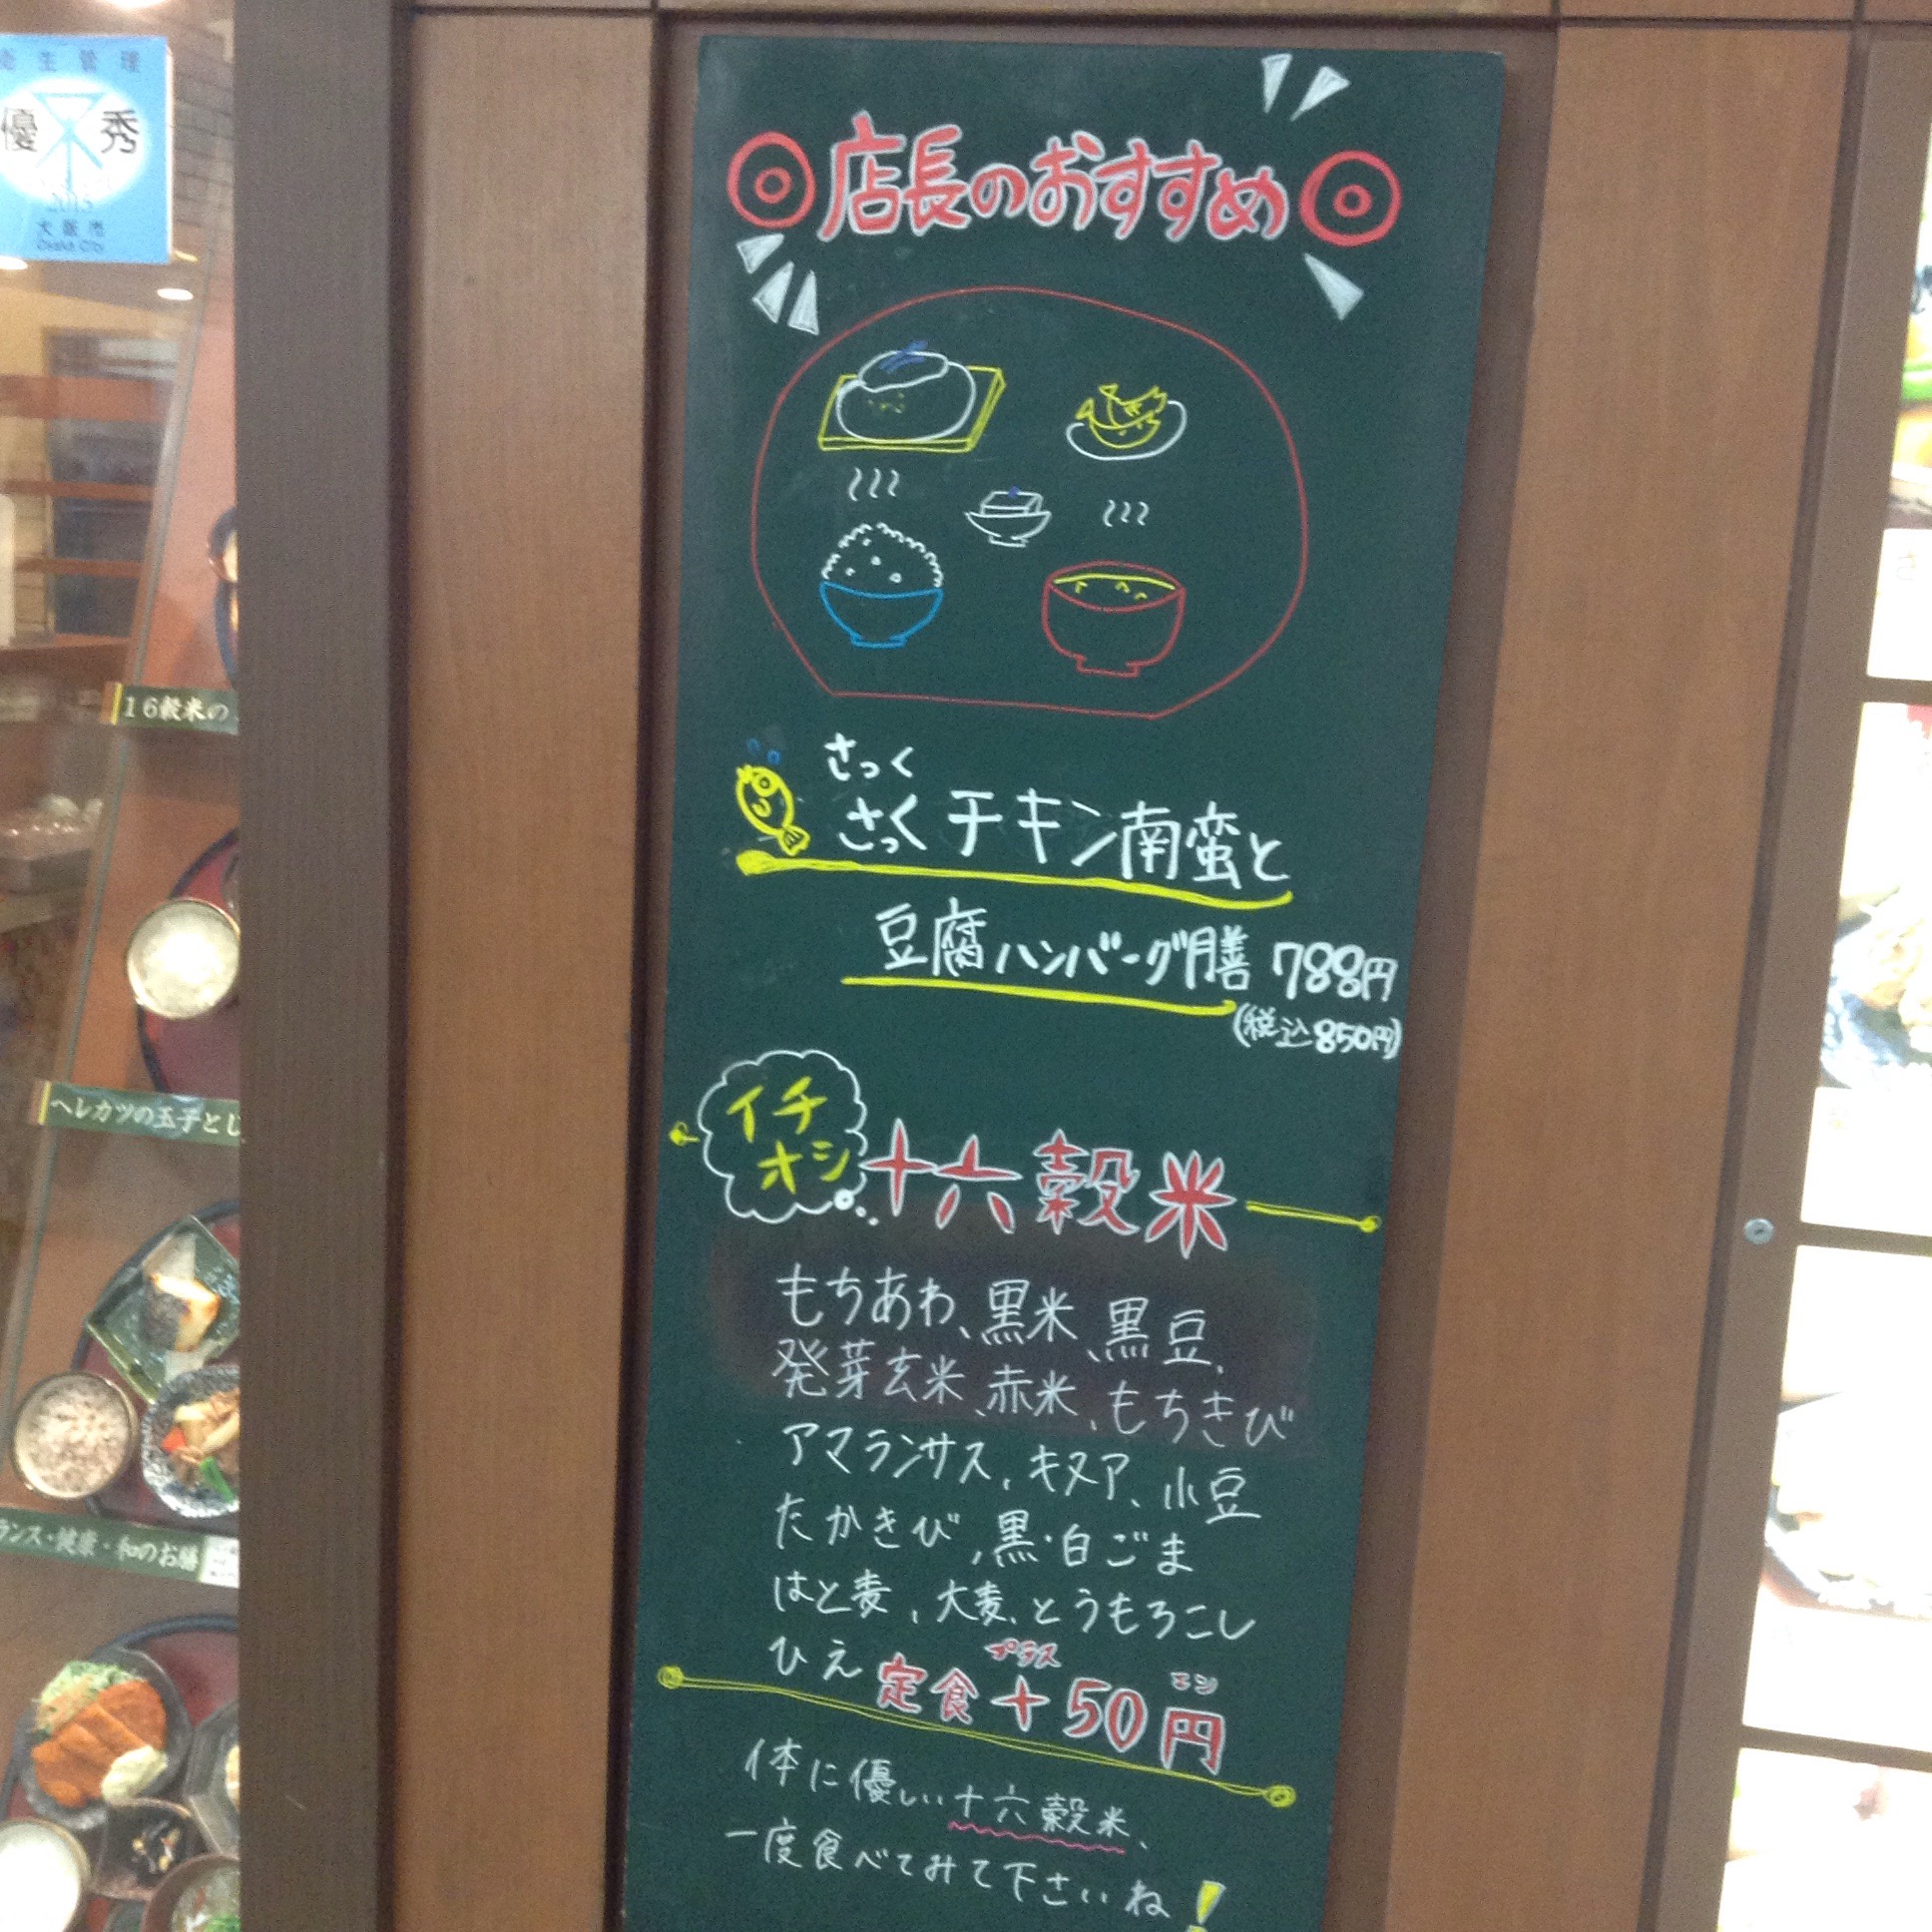 衛生管理
優秀
2015
大阪市
Osaka City
16穀米の
ヘレカツの玉子とじ
ランス・健康・和のお膳
店長のおすすめ
さっく
さっく チキン南蛮と
豆腐ハンバーグ膳 788円
(税込850円)
イチ
オシ
十六穀米
もちあわ、黒米、黒豆、
発芽玄米、赤米、もちきび
アマランサス、キヌア、小豆
たかきび、黒・白ごま
はと麦、大麦、とうもろこし
ひえ
プラス エン
定食+50円
体に優しい十六穀米、
一度食べてみて下さいね!